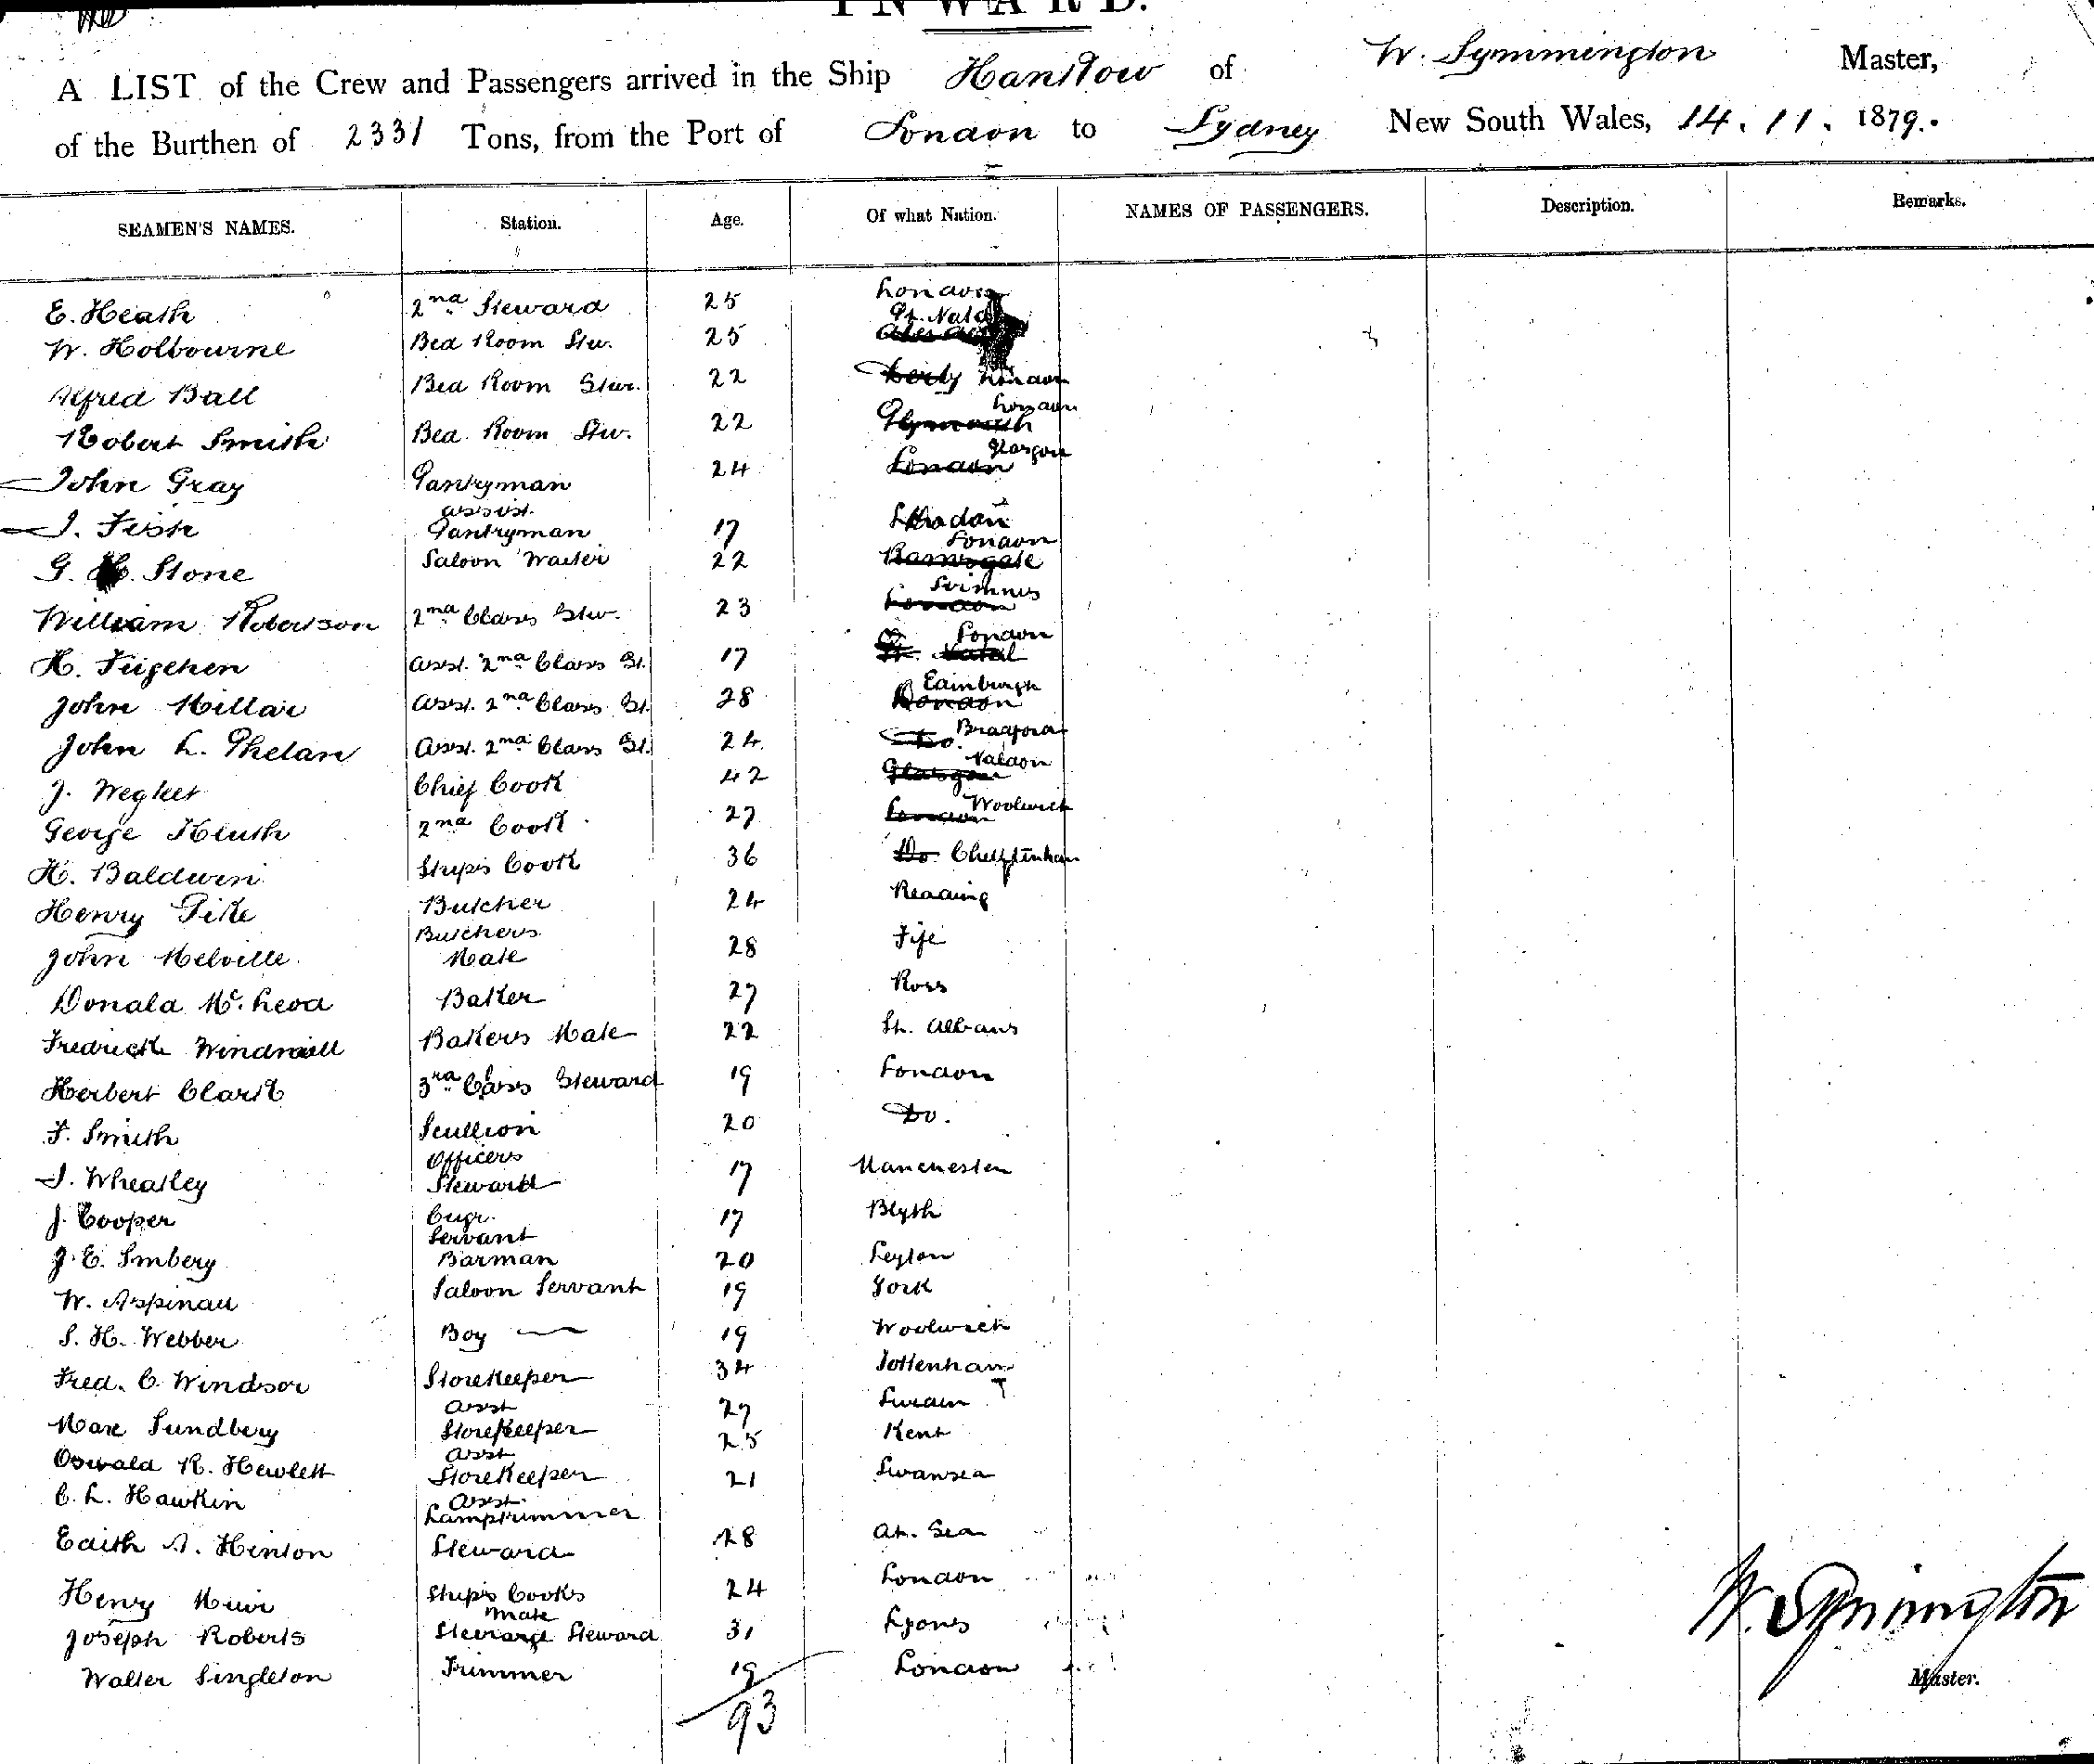 INWARD.
A LIST of the Crew and Passengers arrived in the Ship Hanstow of W. Symmington Master,
of the Burthen of 2331 Tons, from the Port of London to Sydney New South Wales, 14. 11. 1879.
SEAMEN'S NAMES. Station. Age. Of what Nation. NAMES OF PASSENGERS. Description. Remarks.
E. Heath 2nd Steward 25 London
W. Holbourne Bed Room Stw. 25 Pt. Natal
Alfred Ball Bed Room Stw. 22 Derby London
Robert Smith Bed Room Stw. 22 Plymouth London
John Gray Pantryman 24 London Glasgow
J. Fish assist. Pantryman 17 London
G. H. Stone Saloon Waiter 22 Ramsgate London
William Robertson 2nd Class Stw. 23 London
H. Asst. 2nd Class St. 17 Pt. Natal London
John Millar Asst. 2nd Class St. 28 London Edinburgh
John L. Phelan Asst. 2nd Class St. 24 Do. Bradford
J. Chief Cook 42 Glasgow
George 2nd Cook 27 London Woolwich
H. Baldwin Ships Cook 36 Do. Chelttenham
Henry Pike Butcher 24 Reading
John Melville Butchers Mate 28 Fife
Donald Mc. Leod Baker 27 Ross
Fredrick Windmill Bakers Mate 22 St. Albans
Herbert Clark 3rd Class Steward 19 London
F. Smith Scullion 20 Do.
J. Wheatley Officers Steward 17 Manchester
J. Cooper Engr. Servant 17 Blyth
J. E. Imbery Barman 20 Leyton
W. Aspinall Saloon Servant 19 York
S. H. Webber Boy 19 Woolwich
Fred. C. Windsor Storekeeper 34 Tottenham
Max Sundberg Asst Storekeeper 27
Oswald R. Hewlett Asst Storekeeper 25 Kent
C. L. Hawkin Asst. Lamptrimmer 21 Swansea
Edith A. Hinton Steward 28 At. Sea
Henry Muir Ships Cooks Mate 24 London
Joseph Roberts Steerage Steward 31 Lyons
Walter Singleton Trimmer 19 London
93
W. Symington
Master.